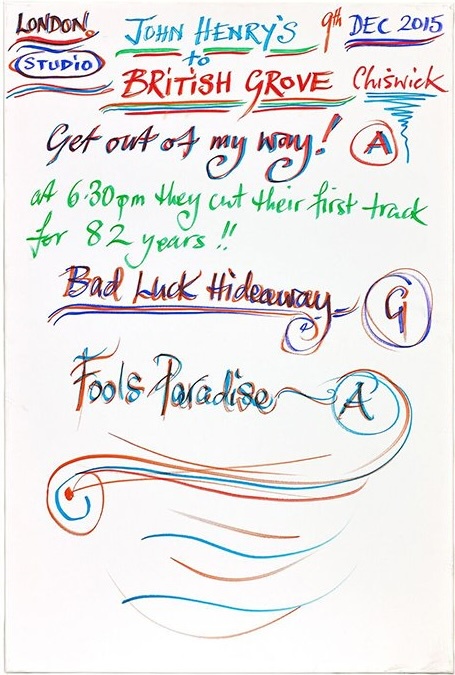 LONDON. JOHN HENRY'S 9th DEC 2015
STUDIO to
BRITISH GROVE Chiswick
Get out of my way! A
at 6·30pm they cut their first track
for 82 years !!
Bad Luck Hideaway G
Fools Paradise A